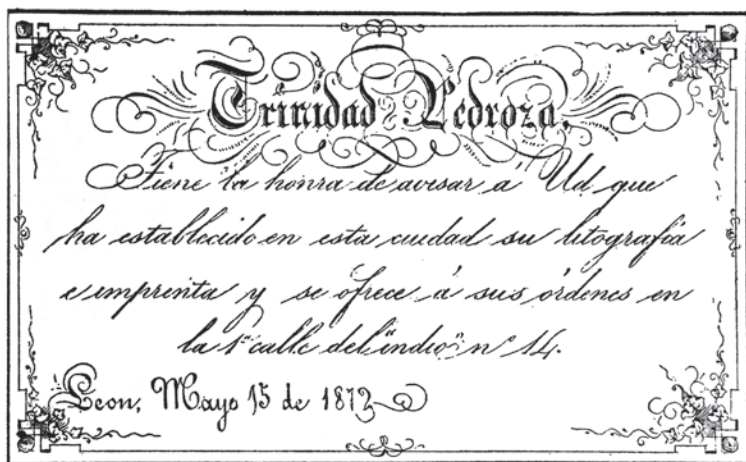 Trinidad Pedroza.
Tiene la honra de avisar á Ud que
ha establecido en esta ciudad su litografía
e imprenta y se ofrece á sus órdenes en
la 1ª calle del "indio" nº 14.
Leon, Mayo 15 de 1872